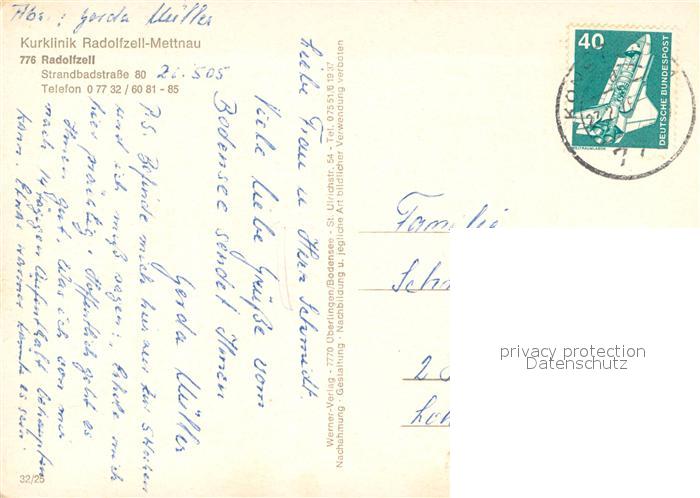 Abs.: Gerda Müller
Kurklinik Radolfzell-Mettnau
776 Radolfzell
Strandbadstraße 80
Telefon 0 77 32 / 60 81 - 85
Zi. 505
Liebe Frau u. Herr Schmidt.
Viele liebe Grüße vom
Bodensee sendet Ihnen
Gerda Müller
P.S. Befinde mich hier zur Kur
und ich muß sagen: erhole mich
hier prächtig. Hoffentlich geht es
Ihnen gut, was ich von mir
nach 14 tägigen Aufenthalt behaupten
kann. Etwas wärmer könnte es sein.
32/25
Werner-Verlag - 7770 Überlingen/Bodensee - St. Ulrichstr. 54 - Tel. 07551/6 19 37
Nachahmung - Gestaltung - Nachbildung u. jegliche Art bildlicher Verwendung verboten
40
DEUTSCHE BUNDESPOST
WELTRAUMLABOR
Familie
Schm
2
privacy protection
Datenschutz